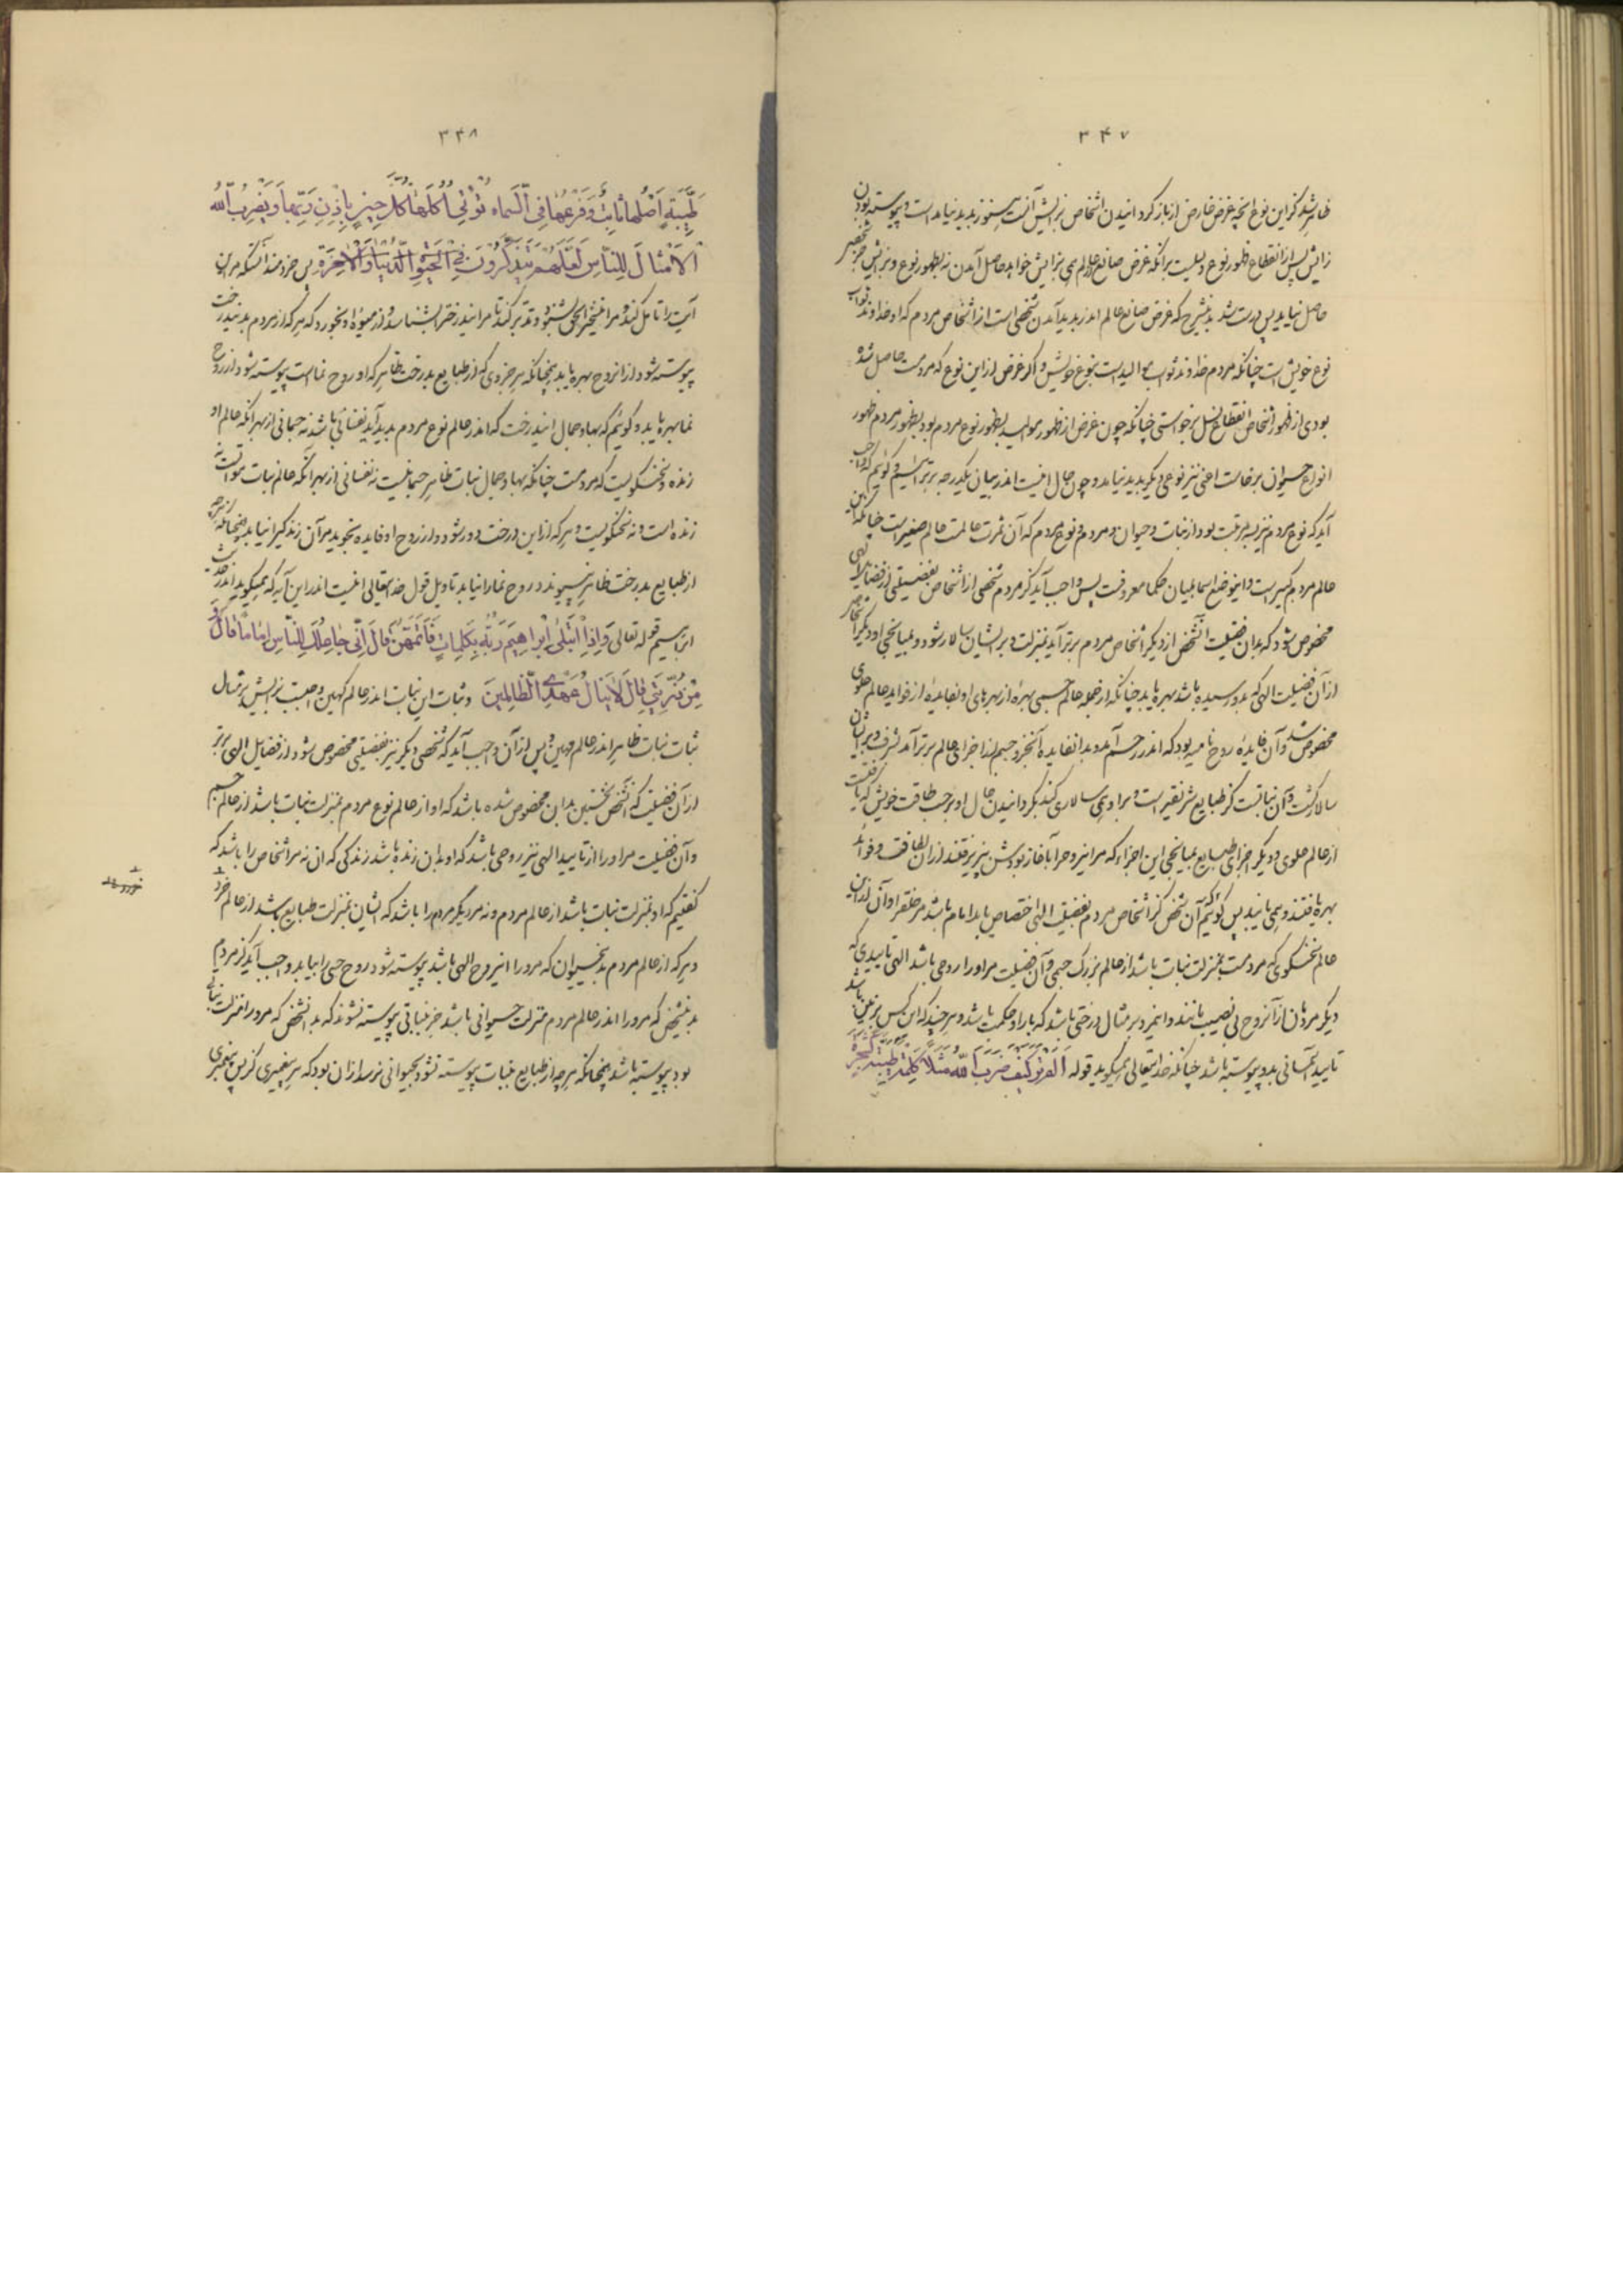 ۳۴۷
ظاهر شد کزین نوع آنچه غرض صانع از باز گردانیدن اشخاص بزایش آنست هنوز پدید نیامده است و پیوسته بودن
زایش پس از انقطاع ظهور نوع دلیلست برآنکه غرض صانع عالم همی بزایش خواهد حاصل آمدن نه بظهور نوع و بزایش جز شخص
حاصل نیاید پس درست شد بدین شرح که غرض صانع عالم اندر پدید آمدن شخصی است از اشخاص مردم که او خداوند ثواب
نوع خویش است چنانکه مردم خداوند ثواب موالیدست بنوع خویش و اگر غرض از این نوع که مردمست حاصل شده
بودی از ظهور اشخاص انقطاع نسل برخواستی چنانکه چون غرض از ظهور موالید بظهور نوع مردم بود بظهور مردم ظهور
انواع حیوان برخاست اعنی نیز نوعی دیگر پدید نیامد و چون حال اینست اندر بیان یکدرجه برتر آئیم و گوئیم که واجب
آید که نوع مردم نیز بسه مرتبت بود از نبات و حیوان و مردم و نوع مردم که آن ثمرت عالمست عالم صغیر است چنانکه این
عالم مردم کبیرست و این وضع اسما میان حکما معروفست پس واجب آید کز مردم شخصی از اشخاص بفضیلتی از فضایل الهی
مخصوص شود که بدان فضیلت آن شخص از دیگر اشخاص مردم برتر آید بمنزلت و بر ایشان سالار شود و بمیانجی او دیگر اشخاص
از آن فضیلت الهی که بدو رسیده باشد بهره یابد چنانکه از جمله عالم جسمی بهره از بهرهای او بفایده از فواید عالم علوی
مخصوص شد و آن فایده روح نامیه بود که اندر جسم آمد و بدان فایده آن جزو جسم از اجزای عالم برتر آمد بشرف و بر ایشان
سالار گشت و آن نباتست کز طبایع شریفتر است و بر او همی سالاری کند بگردانیدن حال او برحسب طاقت خویش که یافتست
از عالم علوی و دیگر اجزای طبایع بمیانجی این اجزاء که مر این روح را بآغاز بودش بپذیرفتند از آن لطافت و فواید
بهره یافتند و همی یابند پس گوئیم آن شخص کز اشخاص مردم بفضیلت الهی اختصاص یابد امام باشد مر خلق را و آن اندرین
عالم سخنگوی که مردمست بمنزلت نبات باشد از عالم بزرگ جسمی و آن فضیلت مر او را روحی باشد الهی تاییدی که
دیگر مردمان از آن روح بی نصیب باشند و این مرد بر مثال درختی باشد که بار او حکمت باشد و هرچند که این کس بر زمین باشد
تایید آسمانی بدو پیوسته باشد چنانکه خدایتعالی همیگوید قوله اَلَم تَرَ کَیفَ ضَرَبَ اللّهُ مَثَلاً کَلِمَةً طَیِّبَةً کَشَجَرَةٍ
۳۴۸
طَیِّبَةٍ اَصلُها ثابِتٌ وَ فَرعُها فِی السَّماء تُؤتی اُکُلَها کُلَّ حینٍ بِاِذنِ رَبِّها وَ یَضرِبُ اللّهُ
الاَمثالَ لِلنّاسِ لَعَلَّهُم یَتَذَکَّرُونَ فِی الحَیوةِ الدُّنیا وَ الاخِرَةِ پس خردمند آنستکه مر این
آیت را تامل کند و مر این شجر الحق بشنود و تدبر کند تا مر این درخت را بشناسد و از میوه او بخورد که هر که از مردم بدین درخت
پیوسته شود از آن روح بهره یابد همچنانکه هر جزوی که از طبایع بدرخت ظاهر که او روح نماست پیوسته شود از روح
نما بهره یابد و گوئیم که بها و جمال این درخت که اندر عالم نوع مردم پدید آید نفسانی باشد نه جسمانی از بهر آنکه عالم او
زنده و سخنگویست که مردمست چنانکه بها و جمال نبات ظاهر جسمانیست نه نفسانی از بهر آنکه عالم نبات مواتست نه
زنده است و نه سخنگویست و هر که از این درخت دور شود و از روح او فایده نجوید مر آن زندگی را نیابد همچنانکه هرچه
از طبایع بدرخت ظاهر نپیوندد روح نما را نیابد تاویل قول خدایتعالی اینست اندر این آیه که همیگوید اندر حدیث
ابراهیم قوله تعالی وَ اِذِ ابتَلی اِبراهیمَ رَبُّهُ بِکَلِماتٍ فَاَتَمَّهُنَّ قالَ اِنّی جاعِلُکَ لِلنّاسِ اِماماً قالَ وَ
مِن ذُرِّیَّتی قالَ لا یَنالُ عَهدِی الظّالِمینَ و ثبات این نبات اندر عالم کهین واجبست بزایش بر مثال
ثبات نبات ظاهر اندر عالم مهین و پس از آن واجب آید که شخصی دیگر نیز بفضیلتی مخصوص شود از فضایل الهی برتر
از آن فضیلت که آن شخص نخستین بدان مخصوص شده باشد که او از عالم نوع مردم بمنزلت نبات باشد از عالم جسم
و آن فضیلت مر او را از تایید الهی نیز روحی باشد که او بدان زنده باشد زندگی که آن نه مر اشخاص را باشد که
گفتیم که او بمنزلت نبات باشد از عالم مردم و نه مر دیگر مردم را باشد که ایشان بمنزلت طبایع باشد از عالم خرد
و هر که از عالم مردم بدین حیوان که مرو را این روح الهی باشد پیوسته شود روح حسی را بیابد و واجب آید کز مردم
بدین شخص که مرو را اندر عالم مردم منزلت حیوانی باشد جز نباتی پیوسته نشوند که بدان شخص که مرو را منزلت نباتی
بود پیوسته باشد همچنانکه هرچه از طبایع بنبات پیوسته نشود بحیوانی نرسد از آن بود که هر پیغمبری کز پس پیغمبری